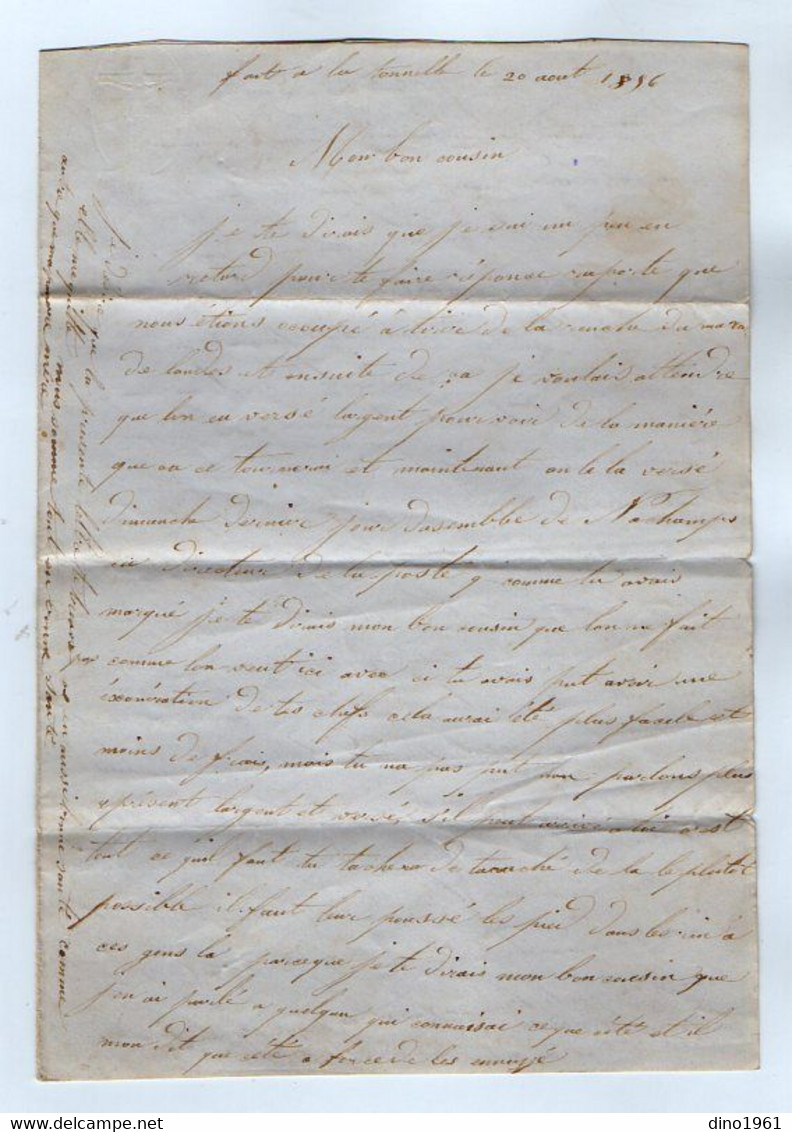 fait a la tonnelle le 20 aout 1856
Mon bon cousin
je te dirais que je sui un peu en
retard pour te faire réponse raporte que
nous étions occupé à                de la            du mara
de landes et ensuite de sa je voulais attendre
que lon eu versé largent pour voir de la maniére
que sa ce tournerai et maintenant on le la versé
dimanche dernier jour dasemblé de Nachamps
au directeur de la poste comme tu avais
marqué je te dirais mon bon cousin que lon ne fait
pas comme lon veut ici avec si tu avais put avoir une
éxonération de tes chefs cela aurai été plus facile et
moins de frais, mais tu na pas put non parlons plus
a présent largent et versé, s'il peut arrivé a toi c'est
tout ce quil faut tu tachera de                de la le plutot
possible il faut leur poussé les pied dans les rin à
ces gens la parceque je te dirais mon bon cousin que
jen ai parlé a quelqun qui connaisai ce que cété et il
mon dit que cété a force de les ennuyé
je désire que la présente lettre te trouve en aussi bonne santé comme
elle me quitte nous somme tout en bonne santé
autre que ma pauvre mère
dino1961